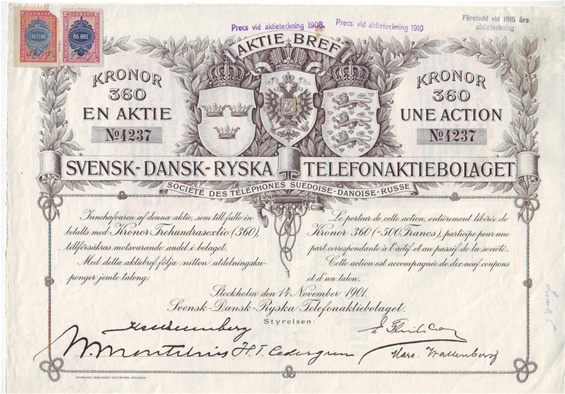 Precs vid aktieteckning 1908.
Precs. vid aktieteckning 1910
Företedd vid 1915 års
aktieteckning
AKTIE-BREF
KRONOR
360
EN AKTIE
No 4237
KRONOR
360
UNE ACTION
No 4237
SVENSK-DANSK-RYSKA TELEFONAKTIEBOLAGET
SOCIÉTÉ DES TÉLÉPHONES SUÉDOISE-DANOISE-RUSSE
Innehafvaren af denna aktie, som till fullo in-
betalts med Kronor Trehundrasextio (360),
tillförsäkras motsvarande andel i bolaget.
Med detta aktiebref följa nitton utdelningsku-
ponger jemte talong.
Le porteur de cette action, entièrement libérée de
Kronor 360 (=500 Francs), participe pour une
part correspondante à l'actif et au passif de la société.
Cette action est accompagnée de dix neuf coupons
et d'un talon.
Stockholm den 14 November 1901.
Svensk-Dansk-Ryska Telefonaktiebolaget.
Styrelsen
H. T. Cedergren
Marc. Wallenberg